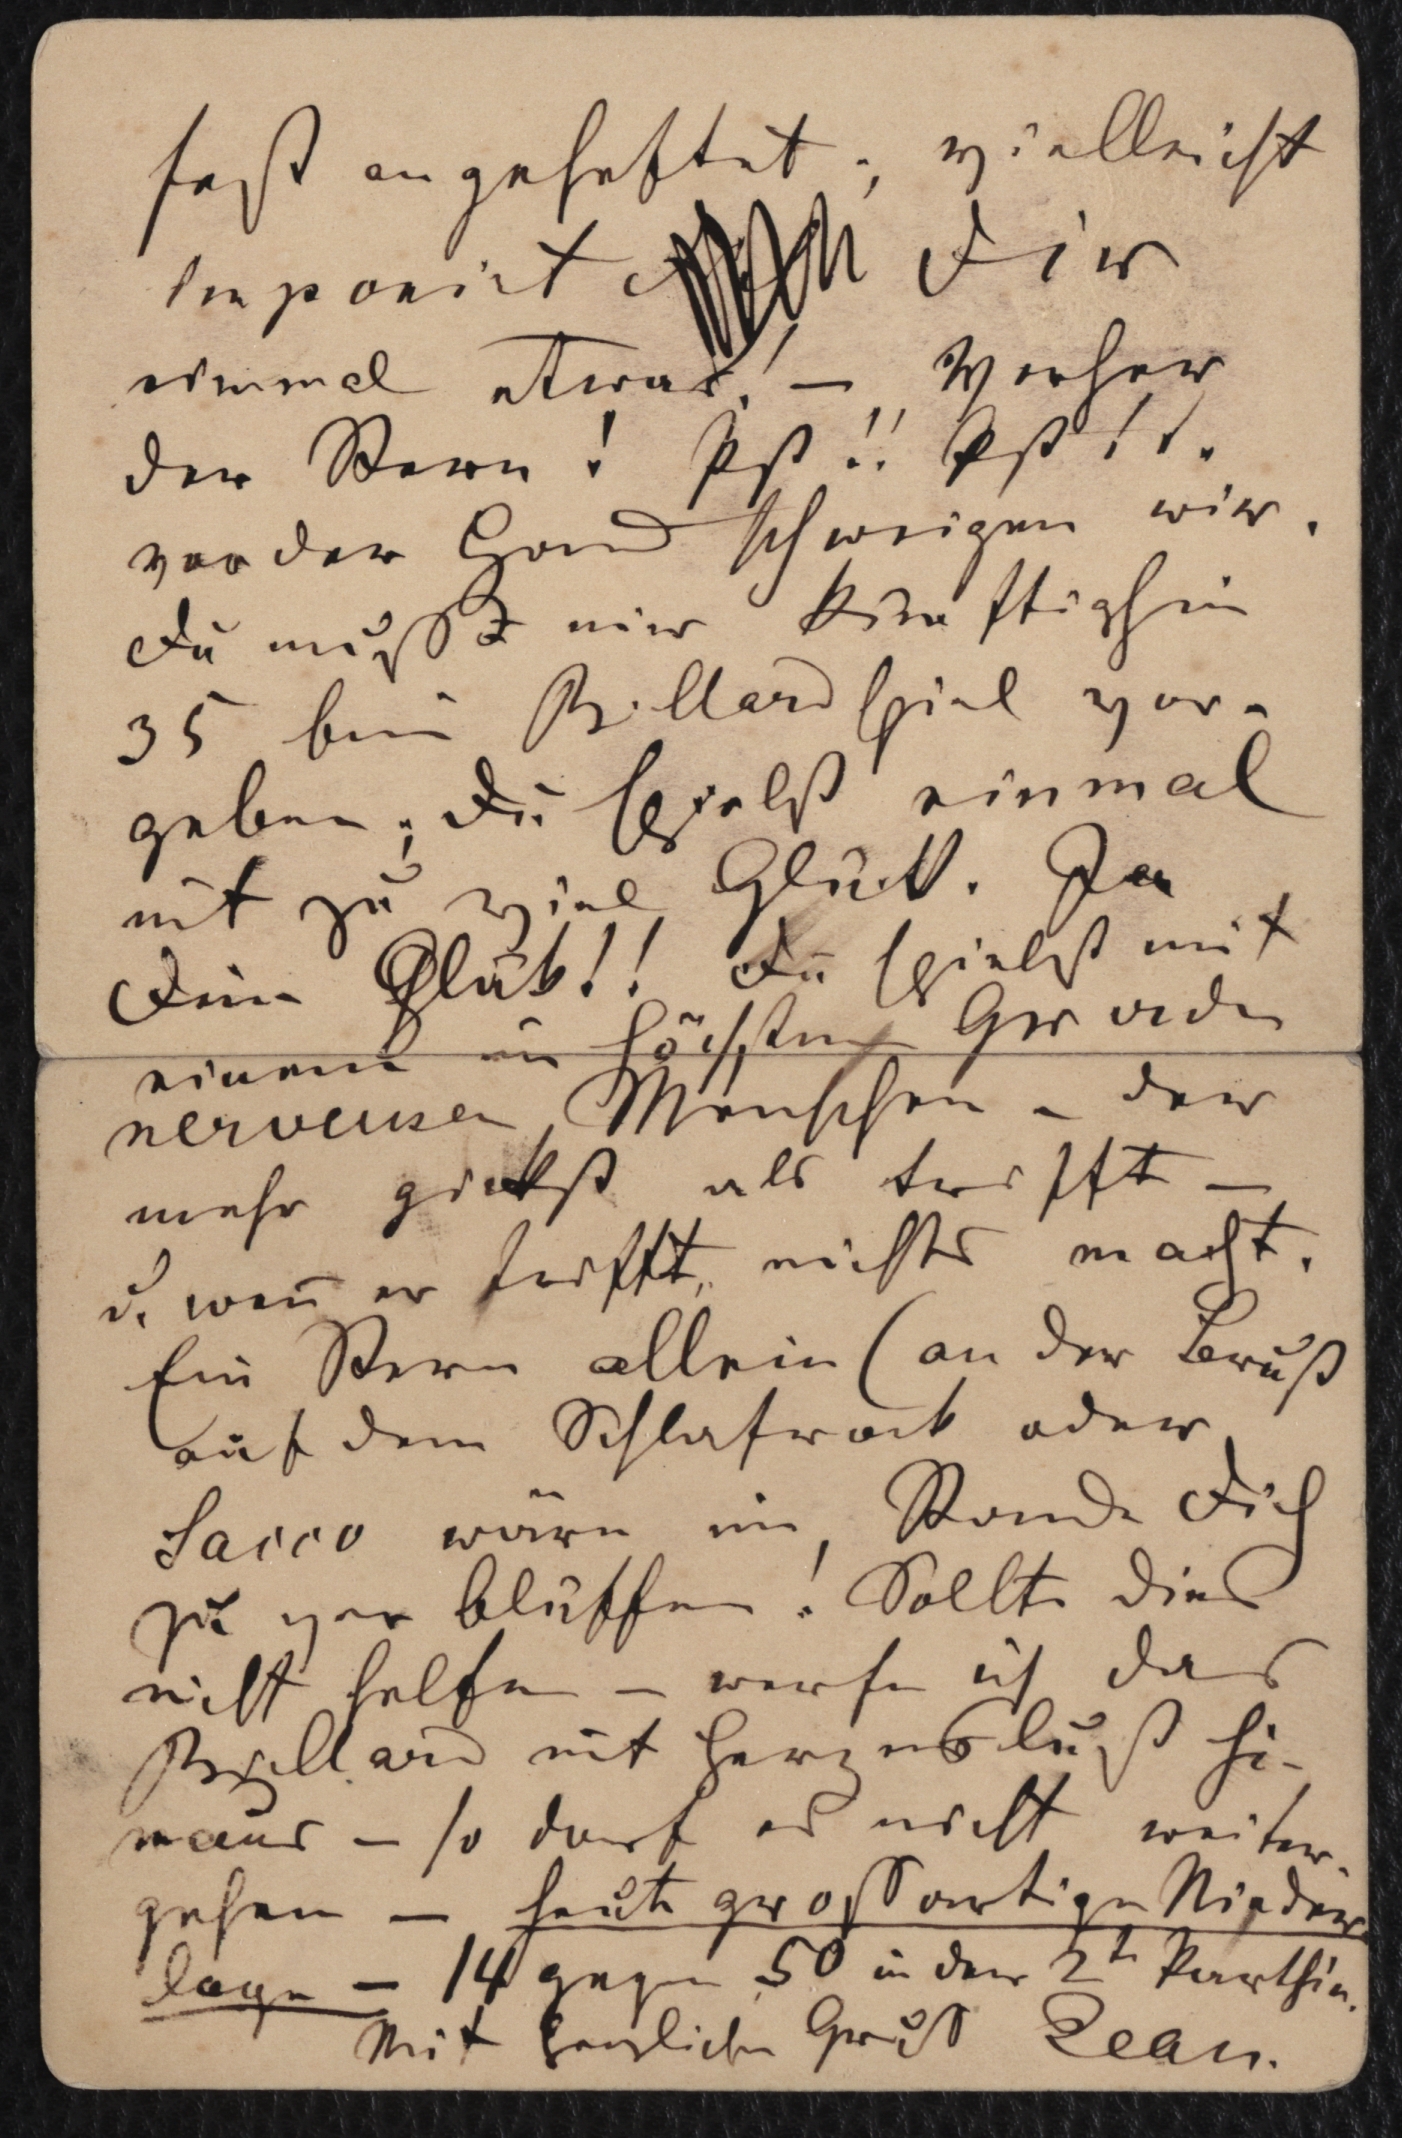 fest angeheftet; vielleicht
imponirt Dir
einmal etwas! — Vorher
der Stern! Pst!! Pst!!.
vor der Hand schweigen wir.
Du mußt mir künftighin
35 beim Billardspiel vor-
geben; Du spielst einmal
mit zu viel Glück. Ja
Dein Glück!! Du spielst mit
einem im höchsten Grade
nerveusen Menschen – der
mehr gickst als trifft —
u. wen̄ er trifft, nichts macht.
Ein Stern allein (an der Brust
auf dem Schlafrock oder
Sacco wäre im Stande Dich
zu verblüffen! Sollte dies
nicht helfen – werfe ich das
Billard mit Herzenslust hi-
naus – so darf es nicht weiter-
gehen — heute grossartige Nieder-
lage — 14 gegen 50 in der 2t Parthie.
Mit herzlichen Gruss Jean.